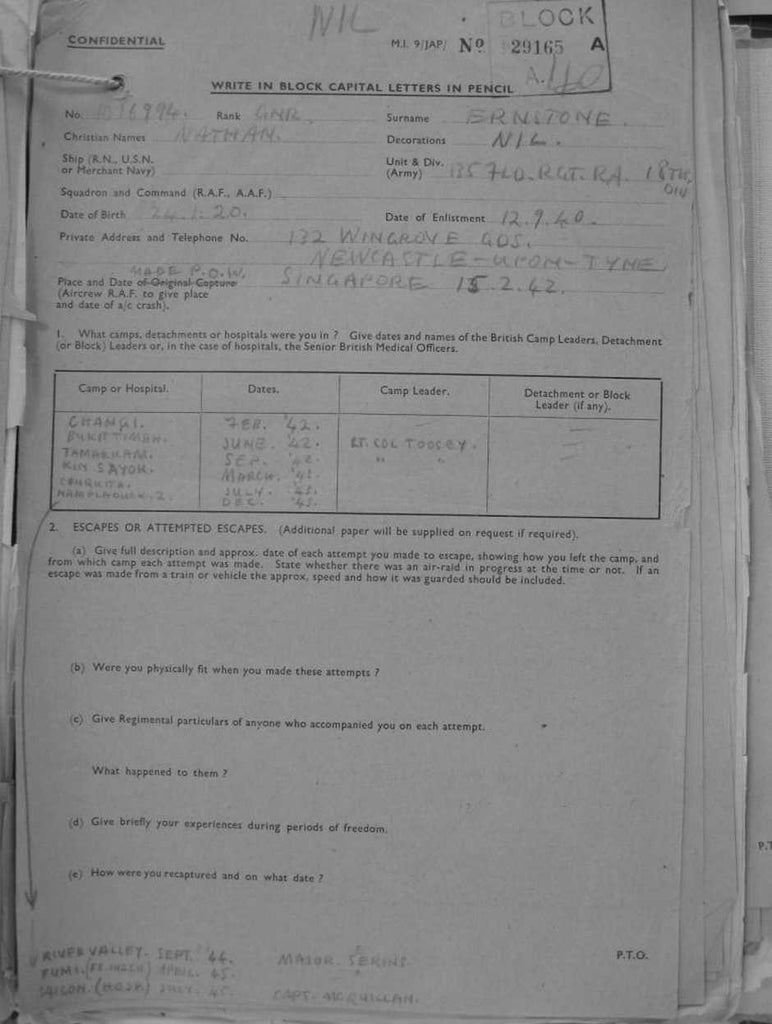 NIL
BLOCK
CONFIDENTIAL
M.I. 9/JAP/ No 29165 A
A.40
WRITE IN BLOCK CAPITAL LETTERS IN PENCIL
No. Rank GNR. Surname ERNSTONE.
Christian Names NATHAN. Decorations NIL.
Ship (R.N., U.S.N. or Merchant Navy) Unit & Div. (Army) 135 FLD. RGT. RA. 18TH. DIV
Squadron and Command (R.A.F., A.A.F.)
Date of Birth 24.1.20. Date of Enlistment 12.9.40.
Private Address and Telephone No. 132 WINGROVE GDS.
NEWCASTLE-UPON-TYNE
MADE P.O.W.
Place and Date of Original Capture SINGAPORE 15.2.42.
(Aircrew R.A.F. to give place
and date of a/c crash).
1. What camps, detachments or hospitals were you in ? Give dates and names of the British Camp Leaders, Detachment
(or Block) Leaders or, in the case of hospitals, the Senior British Medical Officers.
Camp or Hospital. Dates. Camp Leader. Detachment or Block Leader (if any).
CHANGI. FEB. '42.
BUKIT TIMAH. JUNE. '42. LT. COL TOOSEY.
TAMARKAN. SEP. '42. " "
KIN SAYOK. MARCH.
JULY.
DEC.
2. ESCAPES OR ATTEMPTED ESCAPES. (Additional paper will be supplied on request if required).
(a) Give full description and approx. date of each attempt you made to escape, showing how you left the camp, and
from which camp each attempt was made. State whether there was an air-raid in progress at the time or not. If an
escape was made from a train or vehicle the approx. speed and how it was guarded should be included.
(b) Were you physically fit when you made these attempts ?
(c) Give Regimental particulars of anyone who accompanied you on each attempt.
What happened to them ?
(d) Give briefly your experiences during periods of freedom.
(e) How were you recaptured and on what date ?
P.T.O.
RIVER VALLEY. SEPT. '44. MAJOR
APRIL. 45.
SAIGON. JULY. 45. CAPT. McQUILLAN.
P.T